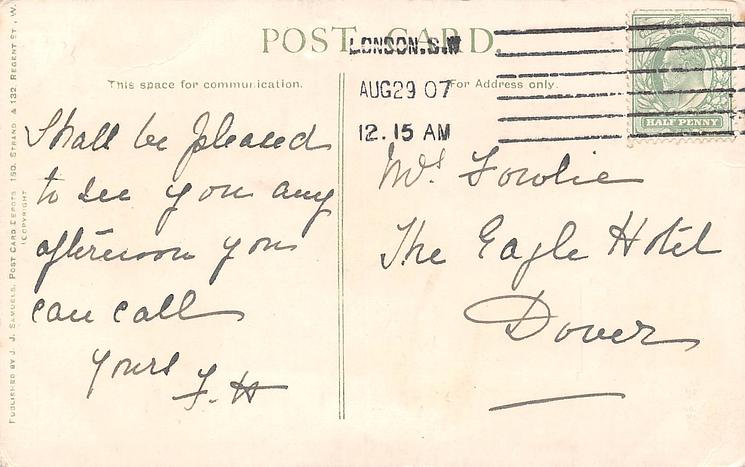 POST CARD.
LONDON.S.W
AUG29 07
12. 15 AM
HALF PENNY
This space for communication.
For Address only.
Shall be pleased
to see you any
afternoon you
can call
Yours
F. H
Mrs Fowlie
The Eagle Hotel
Dover
PUBLISHED BY J. J. SAMUELS, POST CARD DEPOTS 150, STRAND, & 132, REGENT ST., W.
(COPYRIGHT